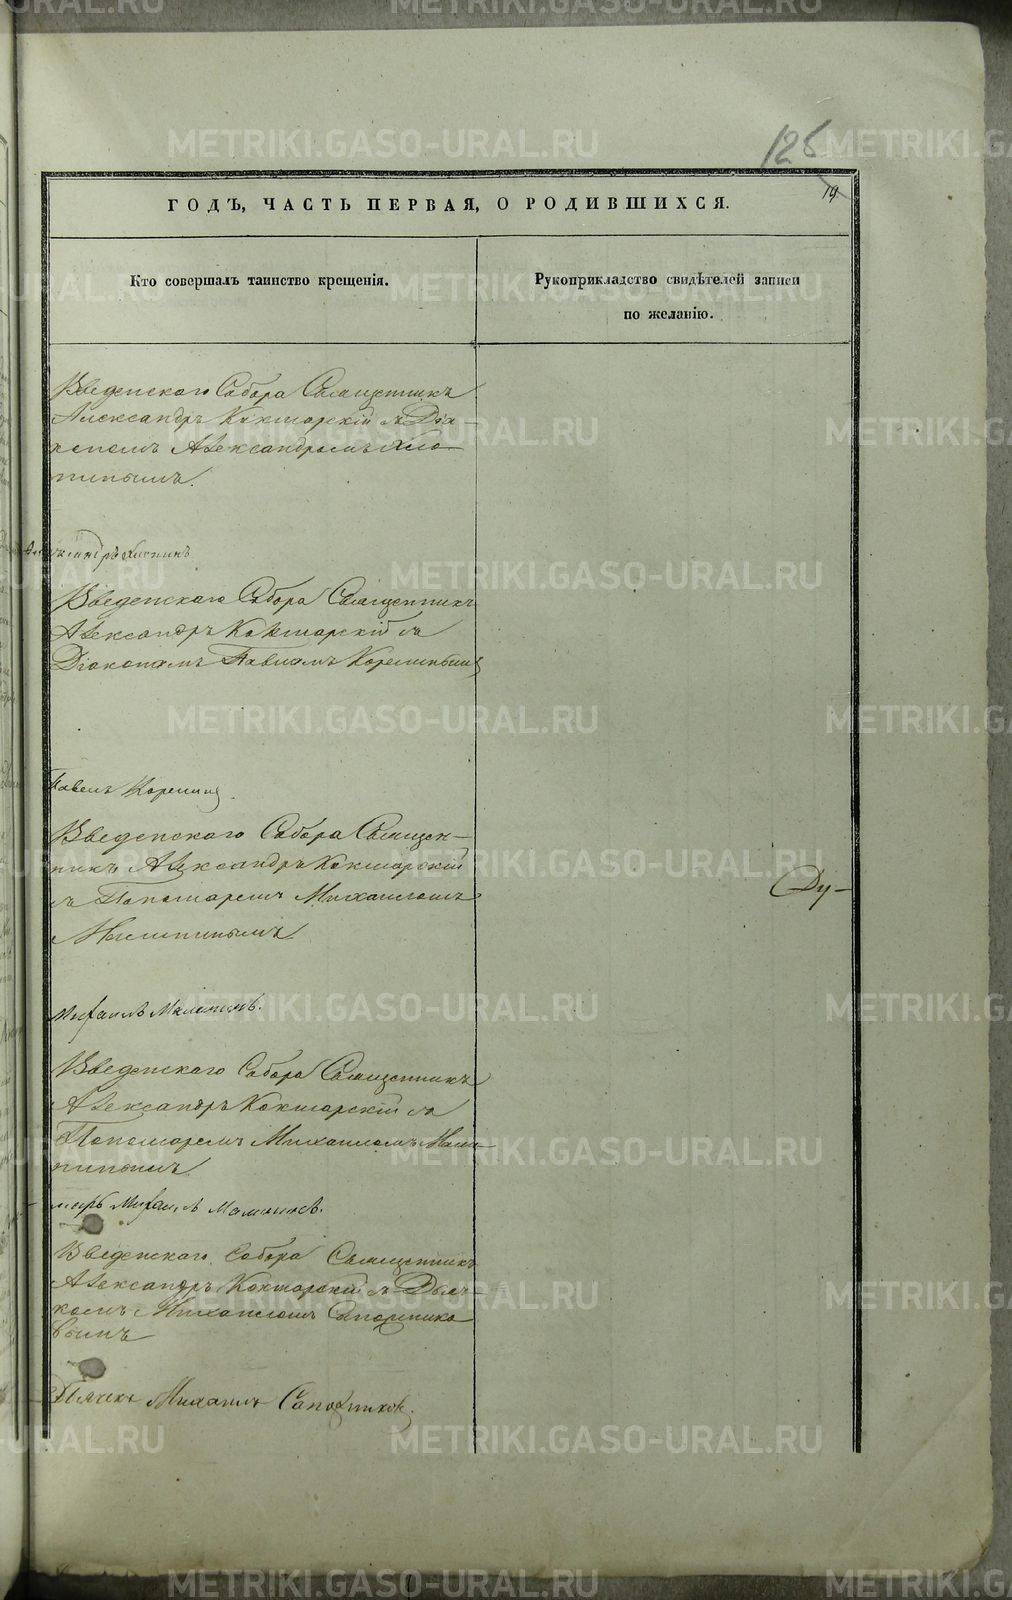 126
19
ГОДЪ, ЧАСТЬ ПЕРВАЯ, О РОДИВШИХСЯ.
Кто совершалъ таинство крещенія.
Рукоприкладство свидѣтелей записи
по желанію.
Введенскаго Собора Священникъ
Александръ Кокшарскій съ Діа-
кономъ Александромъ Хло-
пинымъ.
Введенскаго Собора Священникъ
Александръ Кокшарскій съ
Діакономъ Павломъ Корелинымъ
Павелъ Корелинъ
Введенскаго Собора Священ-
никъ Александръ Кокшарскій
съ Пономаремъ Михаиломъ
Мамин
Ду-
Михаилъ
Введенскаго Собора Священникъ
Александръ Кокшарскій съ
Пономаремъ Михаиломъ
Михаилъ
Введенскаго Собора Священникъ
Александръ Кокшарскій съ Дьяч-
комъ Михаиломъ Сапожнико
вымъ
Дьячекъ Михаилъ Сапожниковъ.
METRIKI.GASO-URAL.RU